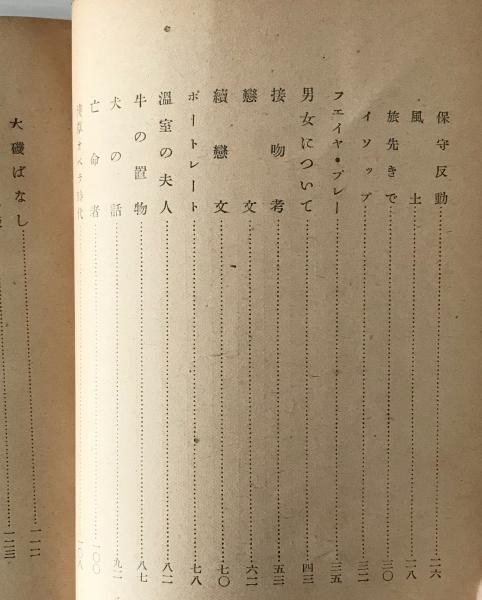 保守反動……二六
風土……二八
旅先きで……三〇
イソップ……三二
フエイヤ・プレー……三五
男女について……四三
接吻考……五三
戀文……六二
續戀文……七〇
ポートレート……七八
溫室の夫人……八二
牛の置物……八七
犬の話……九一
亡命者……一〇〇
時代……一〇八
大磯ばなし……一一二
一二三